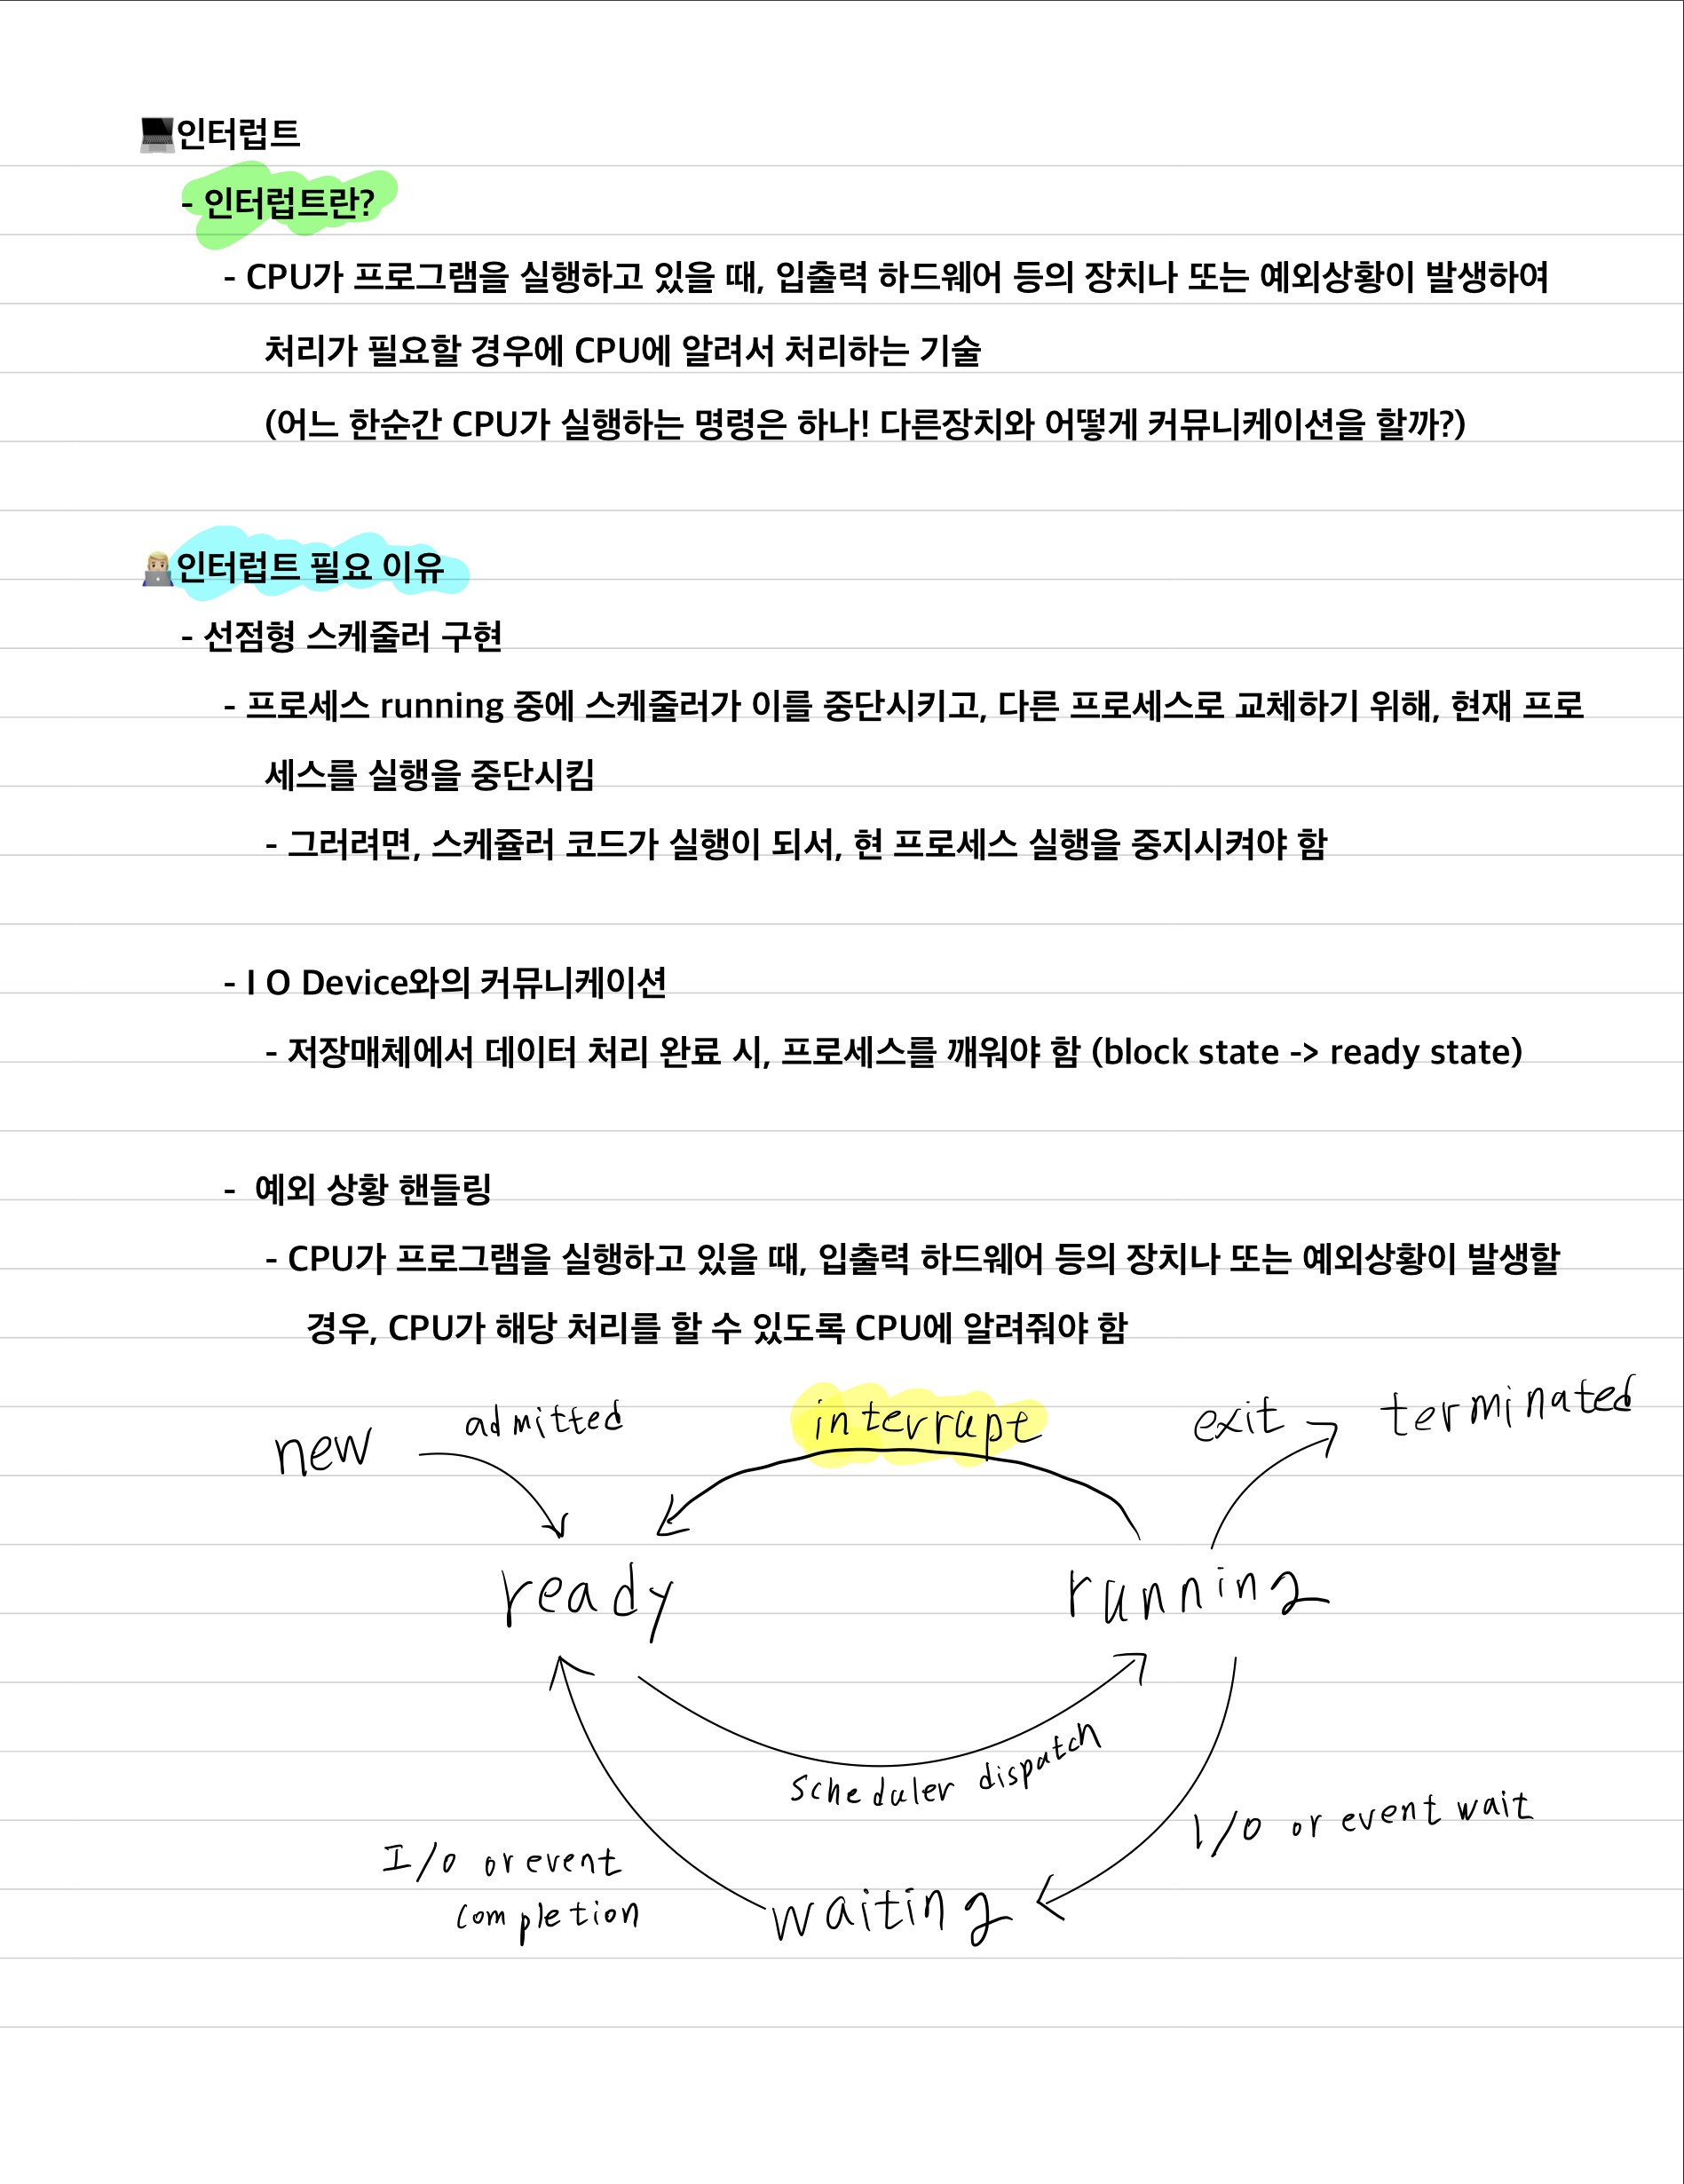 💻인터럽트
- 인터럽트란?
- CPU가 프로그램을 실행하고 있을 때, 입출력 하드웨어 등의 장치나 또는 예외상황이 발생하여
처리가 필요할 경우에 CPU에 알려서 처리하는 기술
(어느 한순간 CPU가 실행하는 명령은 하나! 다른장치와 어떻게 커뮤니케이션을 할까?)
👨🏼‍💻인터럽트 필요 이유
- 선점형 스케줄러 구현
- 프로세스 running 중에 스케줄러가 이를 중단시키고, 다른 프로세스로 교체하기 위해, 현재 프로
세스를 실행을 중단시킴
- 그러려면, 스케쥴러 코드가 실행이 되서, 현 프로세스 실행을 중지시켜야 함
- I O Device와의 커뮤니케이션
- 저장매체에서 데이터 처리 완료 시, 프로세스를 깨워야 함 (block state -> ready state)
- 예외 상황 핸들링
- CPU가 프로그램을 실행하고 있을 때, 입출력 하드웨어 등의 장치나 또는 예외상황이 발생할
경우, CPU가 해당 처리를 할 수 있도록 CPU에 알려줘야 함
new
admitted
interrupt
exit
terminated
ready
running
scheduler dispatch
I/O or event wait
I/O or event
completion
waiting